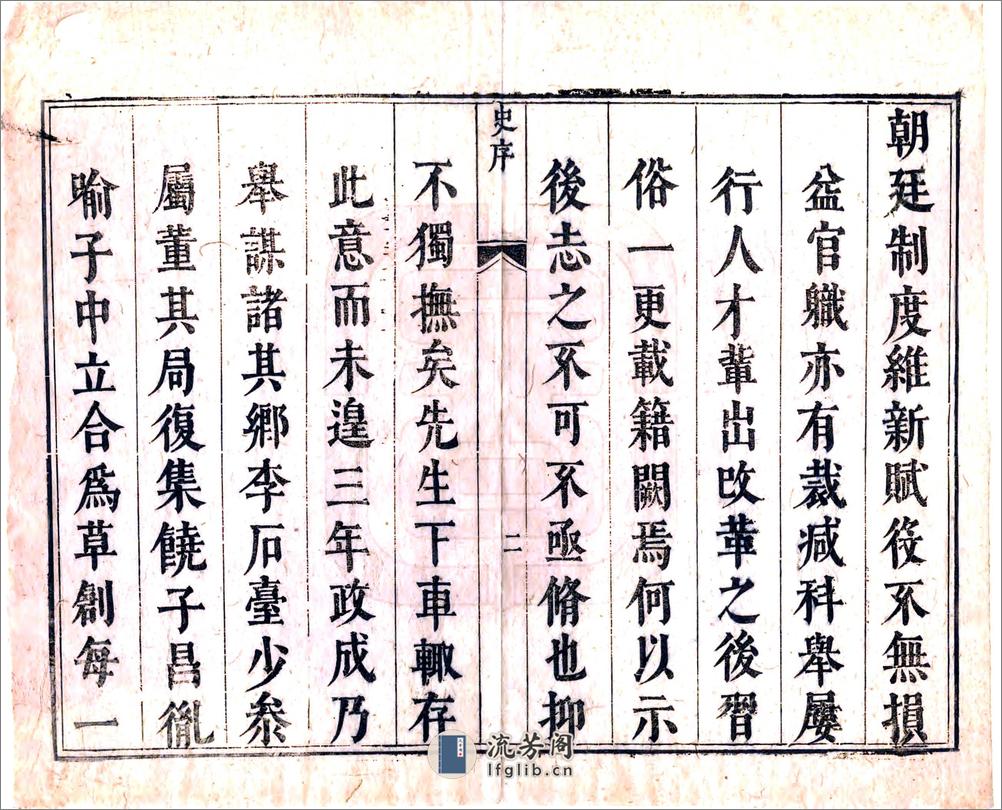 朝廷制度維新賦役不無損
益官職亦有裁減科舉屢
行人才輩出改革之後習
俗一更載籍闕焉何以示
後志之不可不亟脩也抑
史序
二
不獨撫矣先生下車輙存
此意而未遑三年政成乃
舉謀諸其鄉李石臺少叅
屬董其局復集饒子昌胤
喻子中立合爲草創每一
流芳阁
lfglib.cn